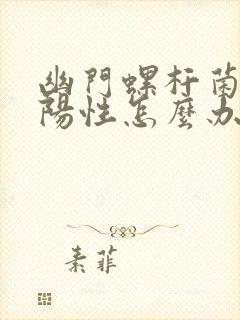 幽門螺杆菌
陽性怎麼办
素菲